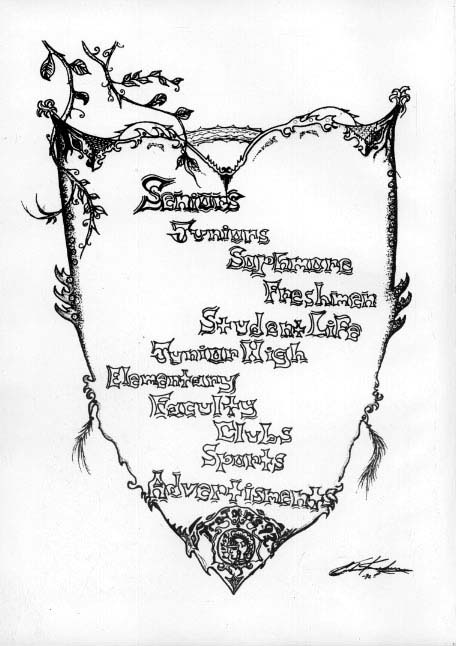 Seniors
Juniors
Sophmore
Freshmen
Student Life
Junior High
Elementary
Faculty
Clubs
Sports
Advertisments